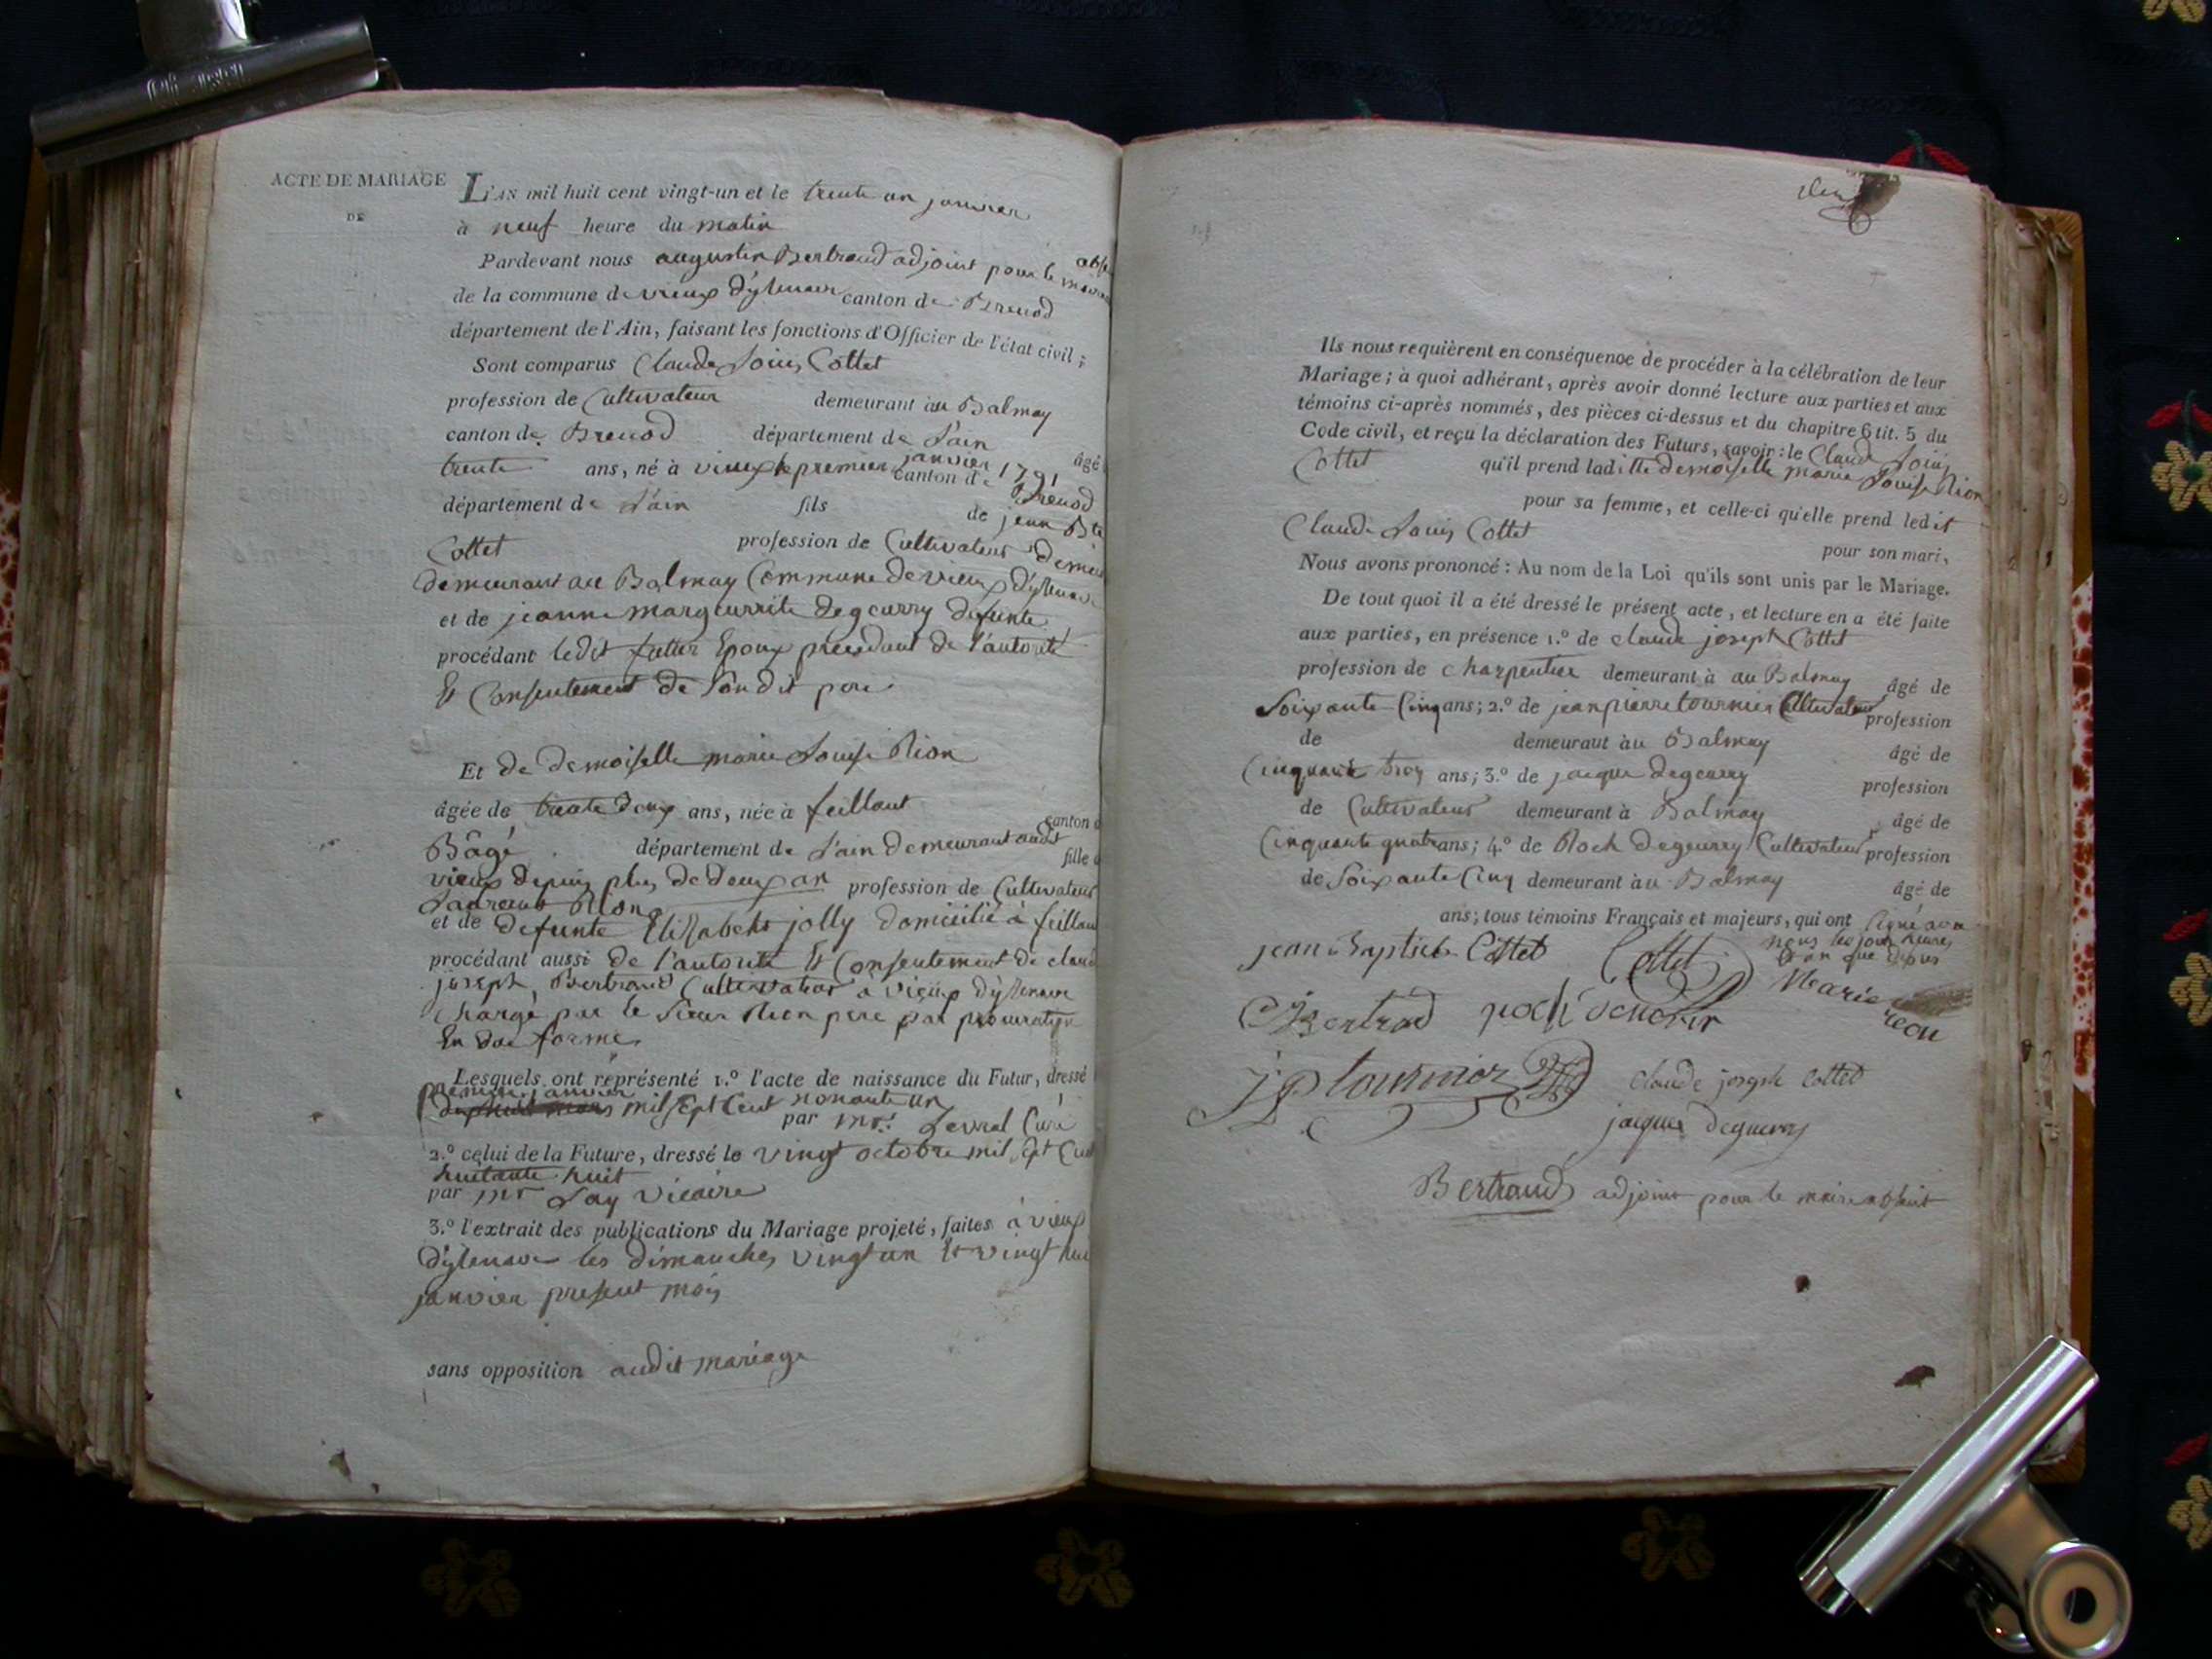 ACTE DE MARIAGE
DE
L'AN mil huit cent vingt-un et le trente un janvier
à neuf heure du matin
Pardevant nous augustin Bertrand adjoint pour le maire abse
de la commune de vieux d'yzenave canton de Brenod
département de l'Ain, faisant les fonctions d'Officier de l'état civil;
Sont comparus Claude Louis Cottet
profession de Cultivateur demeurant au Balmay
canton de Brenod département de L'ain âgé
trente ans, né à vieux le premier janvier 1791 canton de Brenod
département de L'ain fils de jean Bte
Cottet profession de Cultivateur demeu
demeurant au Balmay Commune de vieux d'yzenave
et de jeanne margeurrite degeurry defunte
procédant ledit futur Epoux procedant de l'autorité
Et Consentement de Son dit pere
Et de demoiselle marie Louise Rion
âgée de trente deux ans, née à feillant
canton d
Bâgé département de L'ain demeurant audit
fille d
vieux depuis plus de deux an profession de Cultivateur
Laurent Rion
et de defunte Elizabeht jolly domicilié à feillan
procédant aussi de l'autorité Et Consentement de claud
joseph Bertrand Cultivateur a vieux d'yzenave
Chargé par le Sieur Rion pere par procuration
En due forme
Lesquels ont représenté 1.º l'acte de naissance du Futur, dressé
premier janvier
mil sept Cent nonante un
par mr. Levrat Curé
2.º celui de la Future, dressé le vingt octobre mil sept Cent
huitante huit
par mr Lay Vicaire
3.º l'extrait des publications du Mariage projeté, faites à vieux
d'yzenave les dimanches vingt un Et vingt hui
janvier present mois
sans opposition audit mariage
Ils nous requièrent en conséquence de procéder à la célébration de leur
Mariage; à quoi adhérant, après avoir donné lecture aux parties et aux
témoins ci-après nommés, des pièces ci-dessus et du chapitre 6 tit. 5 du
Code civil, et reçu la déclaration des Futurs, savoir: le Claude Louis
Cottet qu'il prend laditte demoiselle marie Louise Rion
pour sa femme, et celle-ci qu'elle prend ledit
Claude Louis Cottet
pour son mari,
Nous avons prononcé: Au nom de la Loi qu'ils sont unis par le Mariage.
De tout quoi il a été dressé le présent acte, et lecture en a été faite
aux parties, en présence 1.º de claude joseph Cottet
profession de charpentier demeurant à au Balmay âgé de
Soixante Cinq ans; 2.º de jean pierre tournier Cultivateur profession
de demeurant àu Balmay âgé de
Cinquante troy ans; 3.º de jacque degeurry profession
de Cultivateur demeurant à Balmay âgé de
Cinquante quatre ans; 4.º de Roch degeurrey Cultivateur profession
de Soixante Cinq demeurant àu Balmay âgé de
ans; tous témoins Français et majeurs, qui ont signé avec
nous les jour heures
Et an que dessus
jean Baptiste Cottet Cottet Marie reon
Bertrand
j p tournier claude joseph cottet
jacques deguerry
Bertrand adjoint pour le maire absent